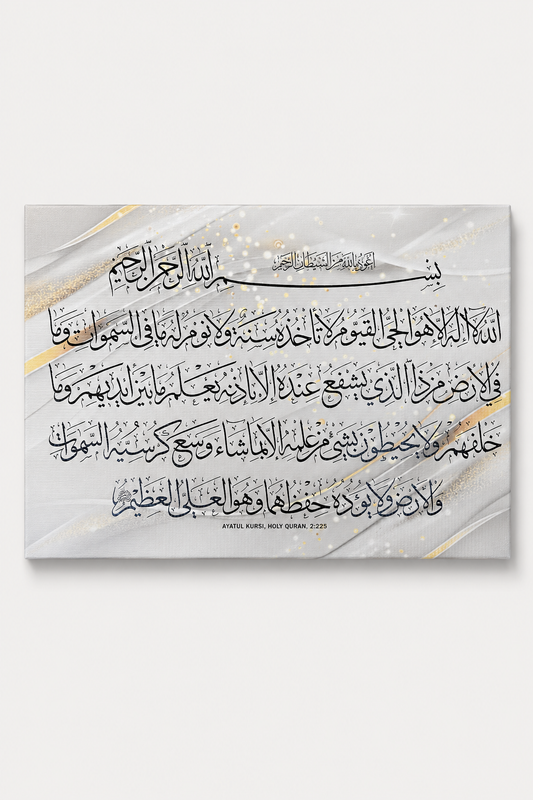 اعوذ بالله من الشيطان الرجيم
بسم الله الرحمن الرحيم
الله لا اله الا هو الحي القيوم لا تأخذه سنة ولا نوم له ما في السموات وما
في الارض من ذا الذي يشفع عنده الا باذنه يعلم ما بين ايديهم وما
خلفهم ولا يحيطون بشئ من علمه الا بما شاء وسع كرسيه السموات
والارض ولا يؤده حفظهما وهو العلي العظيم
AYATUL KURSI, HOLY QURAN, 2:225